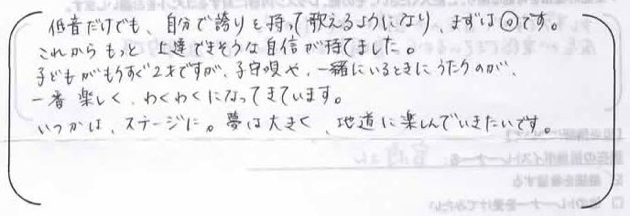 低音だけでも、自分で誇りを持って歌えるようになり、まずは◎です。
これからもっと上達できそうな自信が持てました。
子どもがもうすぐ2才ですが、子守唄や、一緒にいるときにうたうのが、
一番楽しく、わくわくになってきています。
いつかは、ステージに。夢は大きく、地道に楽しんでいきたいです。